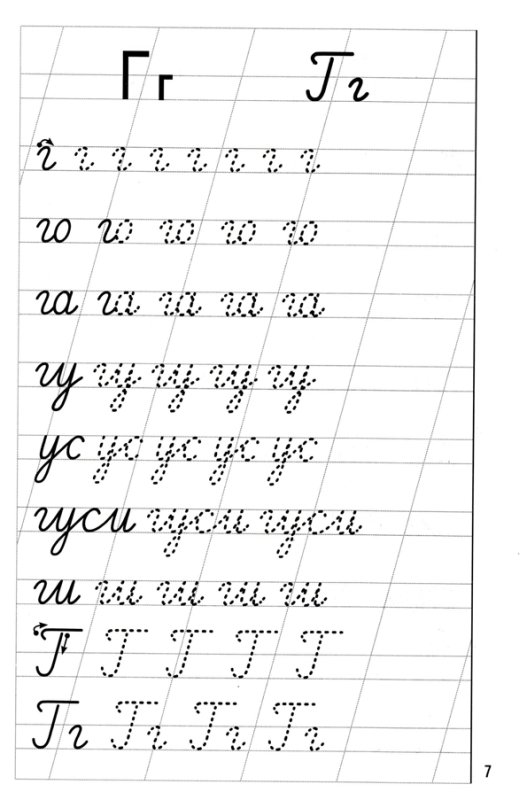 Гг Гг
г г г г г г г г
го го го го го
га га га га га
гу гу гу гу гу
ус ус ус ус ус
гуси гуси гуси
ги ги ги ги ги
Г Г Г Г Г
Гг Гг Гг Гг
7